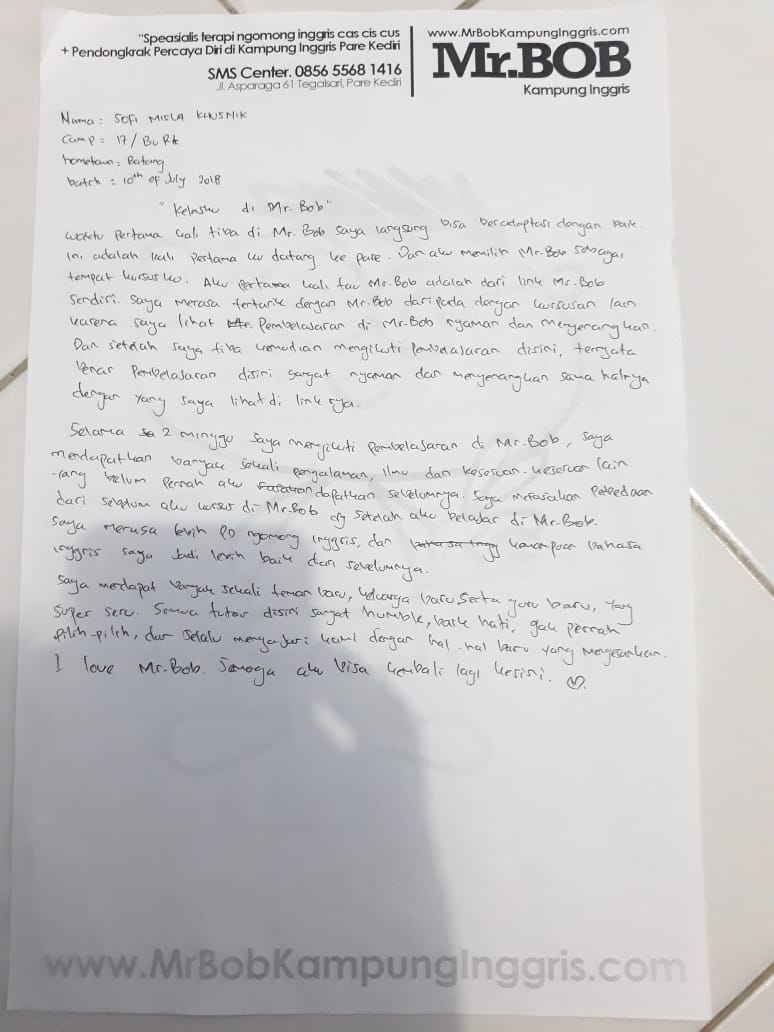 "Speasialis terapi ngomong inggris cas cis cus
+ Pendongkrak Percaya Diri di Kampung Inggris Pare Kediri
SMS Center. 0856 5568 1416
Jl. Asparaga 61 Tegalsari, Pare Kediri
www.MrBobKampungInggris.com
Mr.BOB
Kampung Inggris
Nama : SOFI MISLA KHUSNIK
Camp : 17 / BU RK
hometown : Batang
batch : 10th of July 2018
"Kelasku di Mr. Bob"
Waktu pertama kali tiba di Mr. Bob saya langsung bisa beradaptasi dengan baik.
Ini adalah kali pertama ku datang ke pare. Dan aku memilih Mr.Bob sebagai
tempat kursusku. Aku pertama kali tau Mr.Bob adalah dari link Mr. Bob
sendiri. Saya merasa tertarik dengan Mr.Bob daripada dengan kursusan lain
karena saya lihat Pembelajaran di Mr.Bob nyaman dan menyenangkan.
Dan setelah saya tiba kemudian mengikuti Pembelajaran disini, ternyata
benar Pembelajaran disini sangat nyaman dan menyenangkan sama halnya
dengan yang saya lihat di link nya.
Selama 2 minggu saya mengikuti Pembelajaran di Mr.Bob, saya
mendapatkan banyak sekali pengalaman, Ilmu dan keseruan-keseruan lain
yang belum Pernah aku dapatkan sebelumnya. Saya merasakan Perbedaan
dari sebelum aku kursus di Mr.Bob dg setelah aku belajar di Mr.Bob.
Saya merasa lebih PD ngomong Inggris, dan kemampuan bahasa
inggris saya jadi lebih baik dari sebelumnya.
Saya mendapat banyak sekali teman baru, keluarga baru serta guru baru, yang
super seru. Semua tutor disini sangat humble, baik hati, gak pernah
pilih-pilih, dan selalu mengajari kami dengan hal-hal baru yang mengesankan.
I love Mr.Bob. Semoga aku bisa kembali lagi kesini.
www.MrBobKampungInggris.com